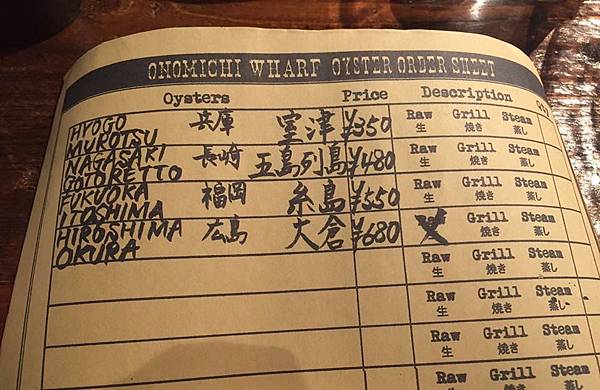 ONOMICHI WHARF OYSTER ORDER SHEET
Oysters Price Description
HYOGO MUROTSU 兵庫 室津 ¥350 Raw Grill Steam
生 焼き 蒸し
NAGASAKI GOTO RETTO 長崎 五島列島 ¥480 Raw Grill Steam
生 焼き 蒸し
FUKUOKA ITOSHIMA 福岡 糸島 ¥550 Raw Grill Steam
生 焼き 蒸し
HIROSHIMA OKURA 広島 大倉 ¥680 Grill Steam
焼き 蒸し
Raw Grill Steam
生 焼き 蒸し
Raw Grill Steam
生 焼き 蒸し
Raw Grill Steam
生 焼き 蒸し
Raw Grill Steam
生 焼き 蒸し